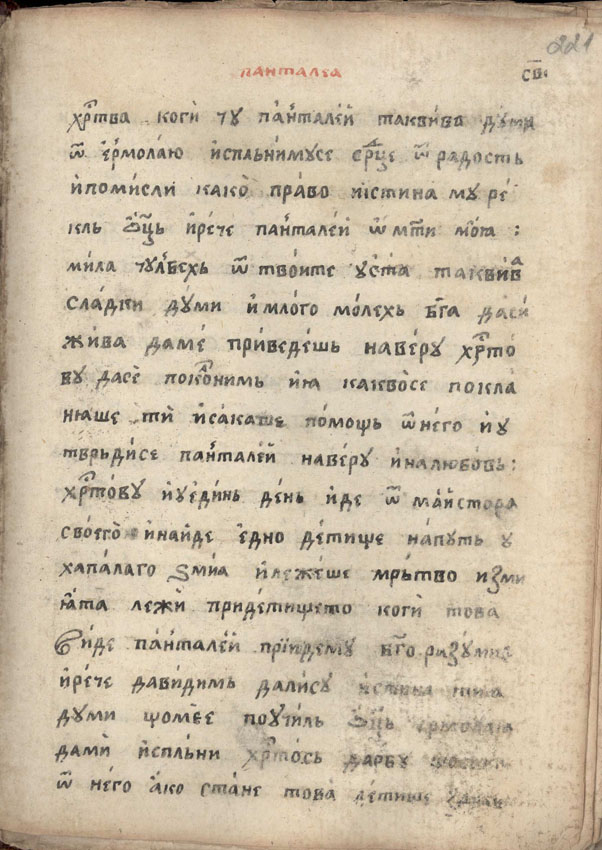 панталеа
св҃і
221
хрⷭ҇тва когѝ чꙋ пантале́й такви́ва дꙋми
ѿ ермола́ю ѝспльнимꙋсе срⷣце ѿ радость
ѝпоми́сли како̀ пра́во ѝстина мꙋ ре́
кль ѻ҆ц҃ь ѝре́че панталей ѿ мт҃и моѧ :
мила чꙋлбехь ѿ твоите ꙋста таквива
сладки дꙋми ѝмлого мо́лехь бг҃а даси
жи́ва даме́ приведе́шь наве́рꙋ хрⷭ҇то́
вꙋ дасѐ поклонимь ѝꙗ каквосе покла
ꙗꙗше тѝ ѝсакаше помощь ѿ него ѝꙋ
тврьдисе панталей наве́рꙋ ѝналюбовь :
хрⷭ҇то́вꙋ ѝꙋеди́нь день ѝде ѿ май́стора
своего̀ ѝнайде едно дети́ще на́пꙋть ꙋ
хапалаго ѕмиа ѝлежеше мрьтво изми
ꙗта лежѝ придетището когѝ това
виде панталей прїидемꙋ бг҃о разꙋмие
ѝре́че давидимь далисꙋ ѝстина тиꙗ
дꙋми щомее поꙋчиль ѻ҆ц҃ь ермолаꙗ
дамѝ ѝспльни хрⷭ҇то́сь дарбꙋ
ѿ него ако ста́не това детище